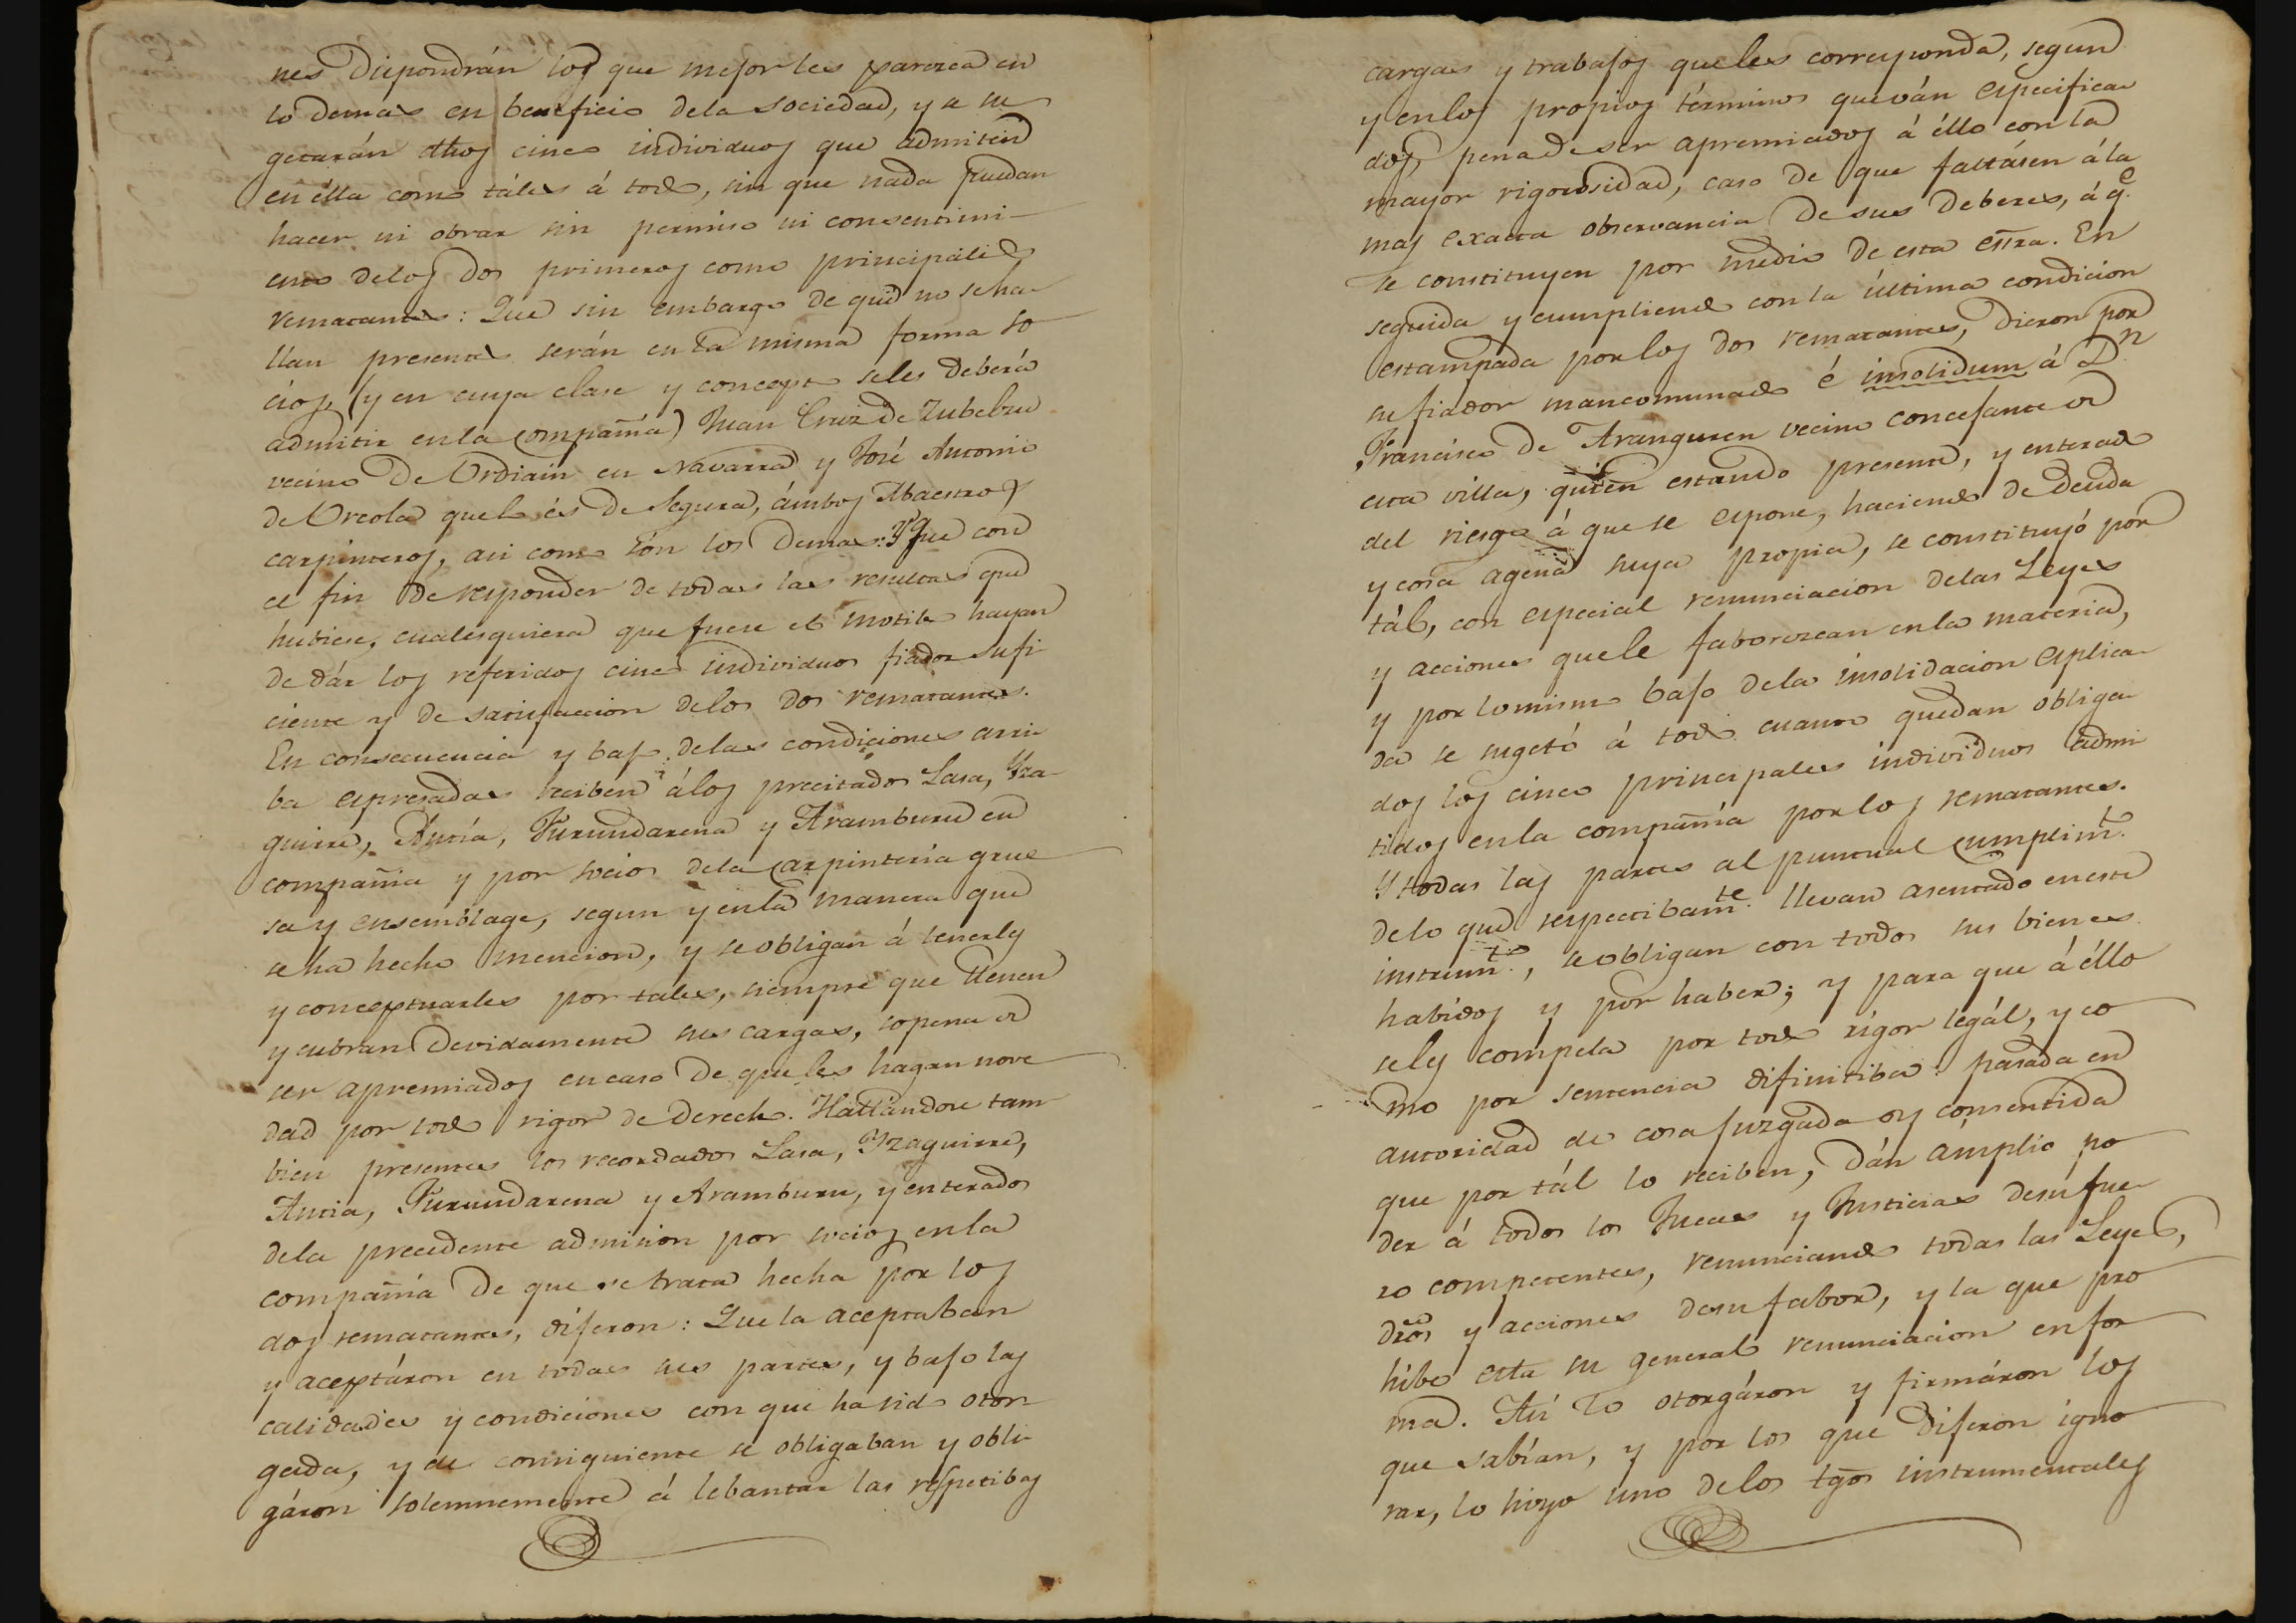 nes dispondrán los que mejor les parezca en
lo demas en beneficio dela sociedad, y a su
getarán dhos cinco individuos que admiten
en élla como táles á todo, sin que nada puedan
hacer ni obrar sin permiso ni consentimi-
ento delos dos primeros como principales
rematantes: Que sin embargo de que no se ha-
llan presentes serán en la misma forma so
cios, (y en cuya clase y concepto seles deberá
admitir enla compañia) Juan Cruz de Zubelzu
vecino de Urdiain en Navarra y José Antonio
de Urcola quelo és de Segura, ámbos Maestros
carpinteros, asi como són los demas: Y que con
el fin de responder de todas las resultas que
hubiere, cualesquiera que fuere el motibo hayan
de dár los referidos cinco individuos fiador sufi
ciente y de satisfaccion delos dos rematantes.
En consecuencia y bajo delas condiciones arri
ba espresadas reciben álos precitados Lasa, Yza-
guirre, Antía, Furundarena y Aramburu en
compañia y por socios dela carpinteria grue
sa y ensemblage, segun y enla manera que
se ha hecho mencion, y se obligan á tenerles
y conceptuarles por tales, siempre que llenen
y cubran devidamente sus cargas, sopena de
ser apremiados en caso de que les hagan nove
dad por todo rigor de derecho. Hallandose tam
bien presentes los recordados Lasa, Yzaguirre,
Antia, Furundarena y Aramburu, y enterados
dela precedente admision por socios enla
compañiá de que se trata hecha por los
dos rematantes, dijeron: Que la aceptaban
y aceptáron en todas sus partes, y bajo las
calidades y condiciones con que ha sido otor
gada, y de consiguiente se obligaban y obli
gáron solemnemente á lebantar las respetibas
cargas y trabajos queles corresponda, segun
y enlos propios términos queván especifica
dos, pena de ser apremiados á éllo con la
mayor rigorosidad, caso de que faltásen á la
mas exacta observancia de sus deberes, á q.e
se constituyen por medio de esta essra. En
seguida y cumpliendo con la última condicion
estampada por los dos rematantes, dieron por
su fiador mancomunado é insolidum á D.n
Francisco de Aranguren vecino concejante de
esta villa, quien estando presente, y enterado
del riesgo á que se espone, haciendo de deuda
y cosa agena suya propia, se constituyó por
tál, con especial renunciacion delas Leyes
y acciones quele faborezcan enla materia,
y por lo mismo bajo dela insolidacion esplica
da se sugetó á todo cuanto quedan obliga
dos los cinco principales individuos admi
tidos enla compañia por los rematantes.
Y todas las partes al puntual cumplim.to
delo que respectibam.te llevan asentado en este
instrum.to, se obligan con todos sus bienes
habidos y por haber; y para que á éllo
seles compela por todo rigor legál, y co
mo por sentencia difinitiba pasada en
autoridad de cosa juzgada y consentida
que por tál lo reciben, dán ámplio po
der á todos los Jueces y Justicias desu fue
ro competentes, renunciando todas las Leyes,
dros y acciones desu fabor, y la que pro
hibe esta su general renunciacion en for
ma. Asi lo otorgáron y firmáron los
que sabían, y por los que dijeron igno
rar, lo hizo uno delos tgos instrumentales